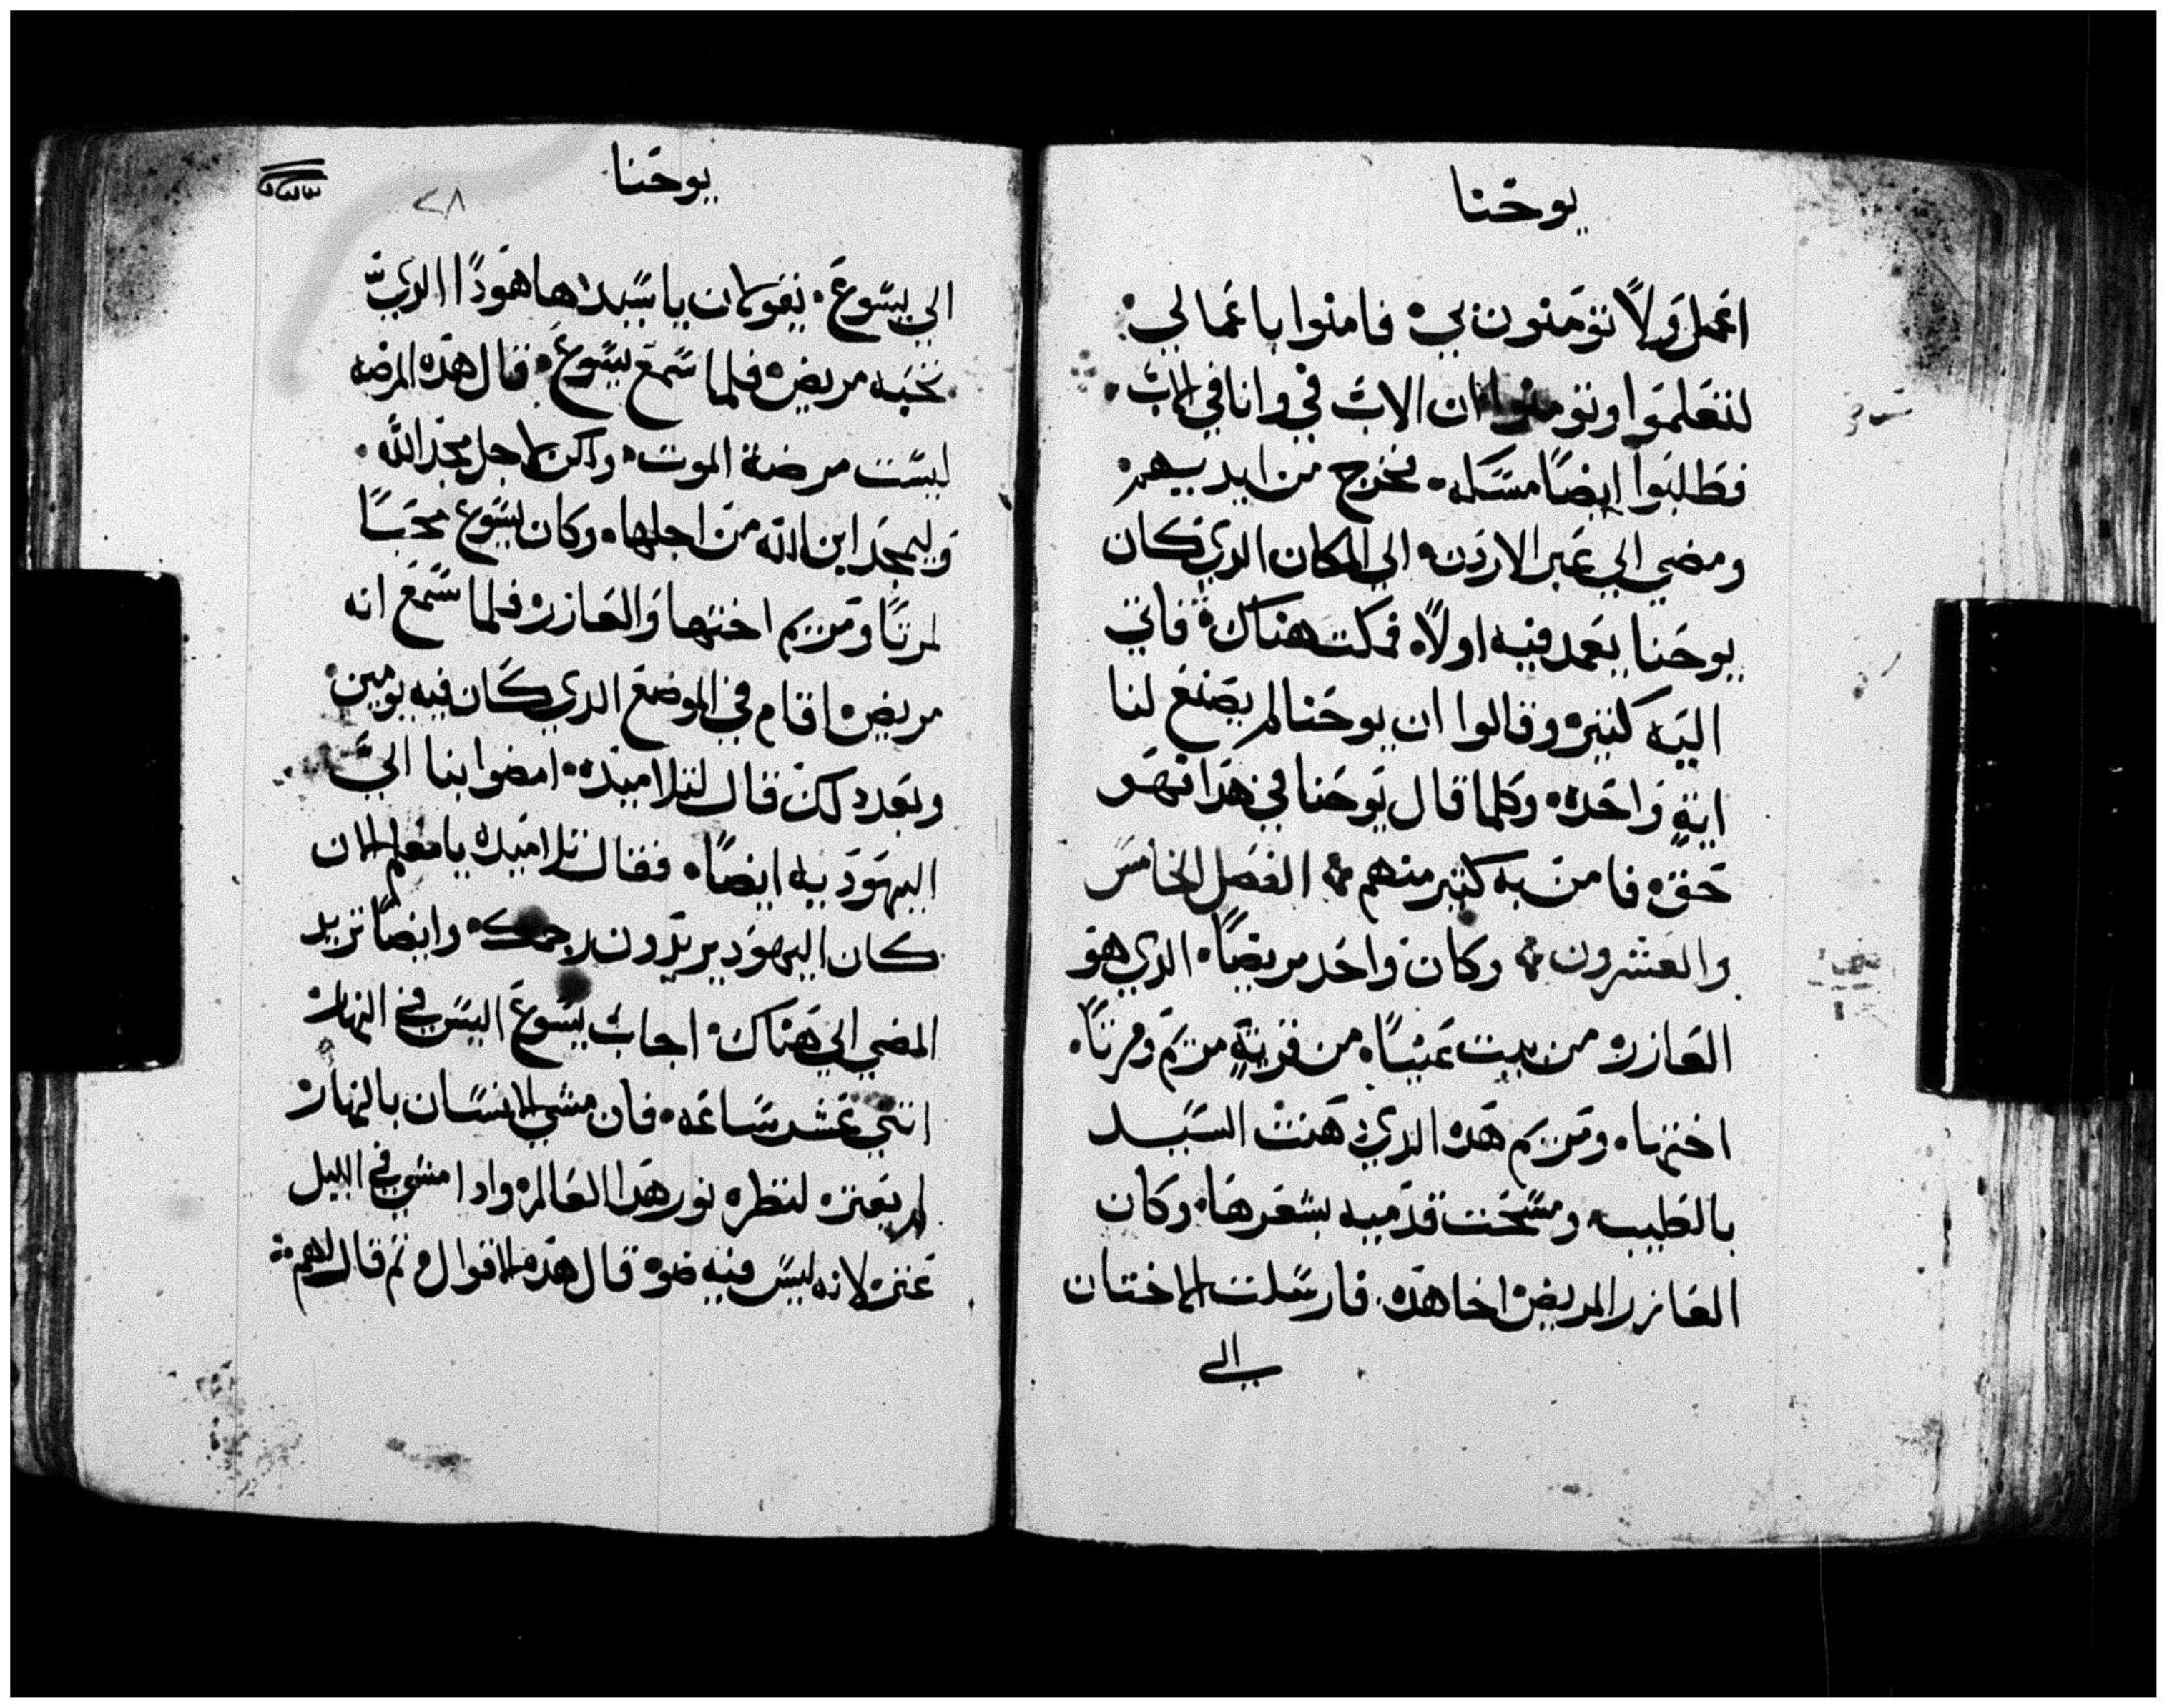 يوحنا
اعمل ولا تومنون بي فامنوا باعمالي
لتعلموا وتومنوا ان الاب في وانا في الاب
فطلبوا ايضا مسكه فخرج من ايديهم
ومضي الي عبر الاردن الي المكان الدي كان
يوحنا يعمد فيه اولا فمكت هناك فاتي
اليه كتيره وقالوا ان يوحنا لم يصنع لنا
اية واحده وكلما قال يوحنا في هدا فهو
حق فامن به كتير منهم الفصل الخامس
والعشرون وكان واحد مريضا الدي هو
العازر من بيت عنيا من قرية مريم ومرتا
اختها ومريم هده الدي دهنت السيد
بالطيب ومسحت قدميه بشعرها وكان
العازر المريض اخا هده فارسلت الاختان
الي
يوحنا
٢٨
الي يسوع يقولان يا سيد ها هودا الدي
تحبه مريض فلما سمع يسوع قال هده المرضه
ليست مرضة الموت ولكن لاجل مجد الله
وليمجد ابن الله من اجلها وكان يسوع محبا
لمرتا ومريم اختها والعازر فلما سمع انه
مريض اقام في الموضع الدي كان فيه يومين
وبعد دلك قال لتلاميده امضوا بنا الي
اليهوديه ايضا فقال تلاميده يا معلم الان
كان اليهود يريدون رجمك وايضا تريد
المضي الي هناك اجاب يسوع اليس في النهار
اتني عشر ساعه فان مشي الانسان بالنهار
لم يعتر لنظره نور هدا العالم وادا مشي في الليل
عتر لانه ليس فيه ضو قال هده الاقوال تم قال لهم